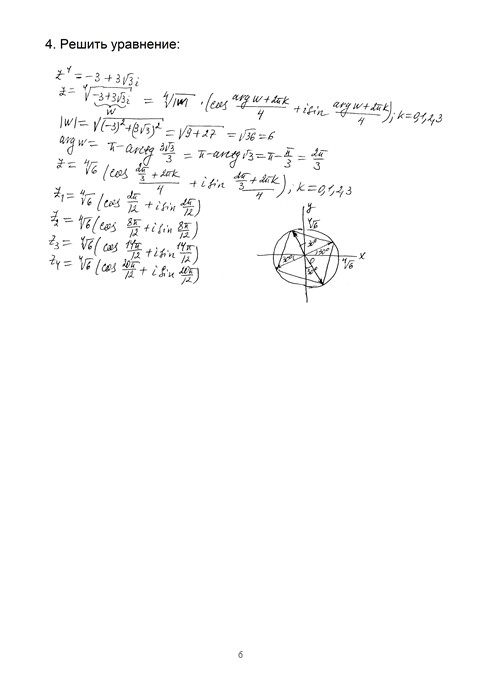 4. Решить уравнение:
z⁴ = -3 + 3√3 i
z = ⁴√(-3+3√3 i) = ⁴√|w| · (cos (arg w + 2πk)/4 + i sin (arg w + 2πk)/4); k = 0,1,2,3
w
|w| = √((-3)² + (3√3)²) = √(9+27) = √36 = 6
arg w = π - arctg 3√3/3 = π - arctg √3 = π - π/3 = 2π/3
z = ⁴√6 (cos (2π/3 + 2πk)/4 + i sin (2π/3 + 2πk)/4); k = 0,1,2,3
z₁ = ⁴√6 (cos 2π/12 + i sin 2π/12)
z₂ = ⁴√6 (cos 8π/12 + i sin 8π/12)
z₃ = ⁴√6 (cos 14π/12 + i sin 14π/12)
z₄ = ⁴√6 (cos 20π/12 + i sin 20π/12)
y
⁴√6
30°
30° 30° x
0 ⁴√6
30°
6